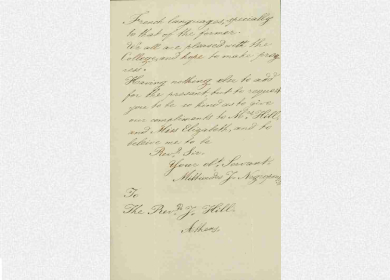 French languages, specially
to that of the former.
We all are pleased with the
College and hope to make prog
ress.
Having nothing else to add
for the present, but to request
you to be so kind as to give
our compliments to Mrs. Hill,
and Miss Elizabeth, and to
believe me to be
Revd. Sir
Your Ob. Servant
Miltiades J.
To
The Revd. J. Hill
Athens